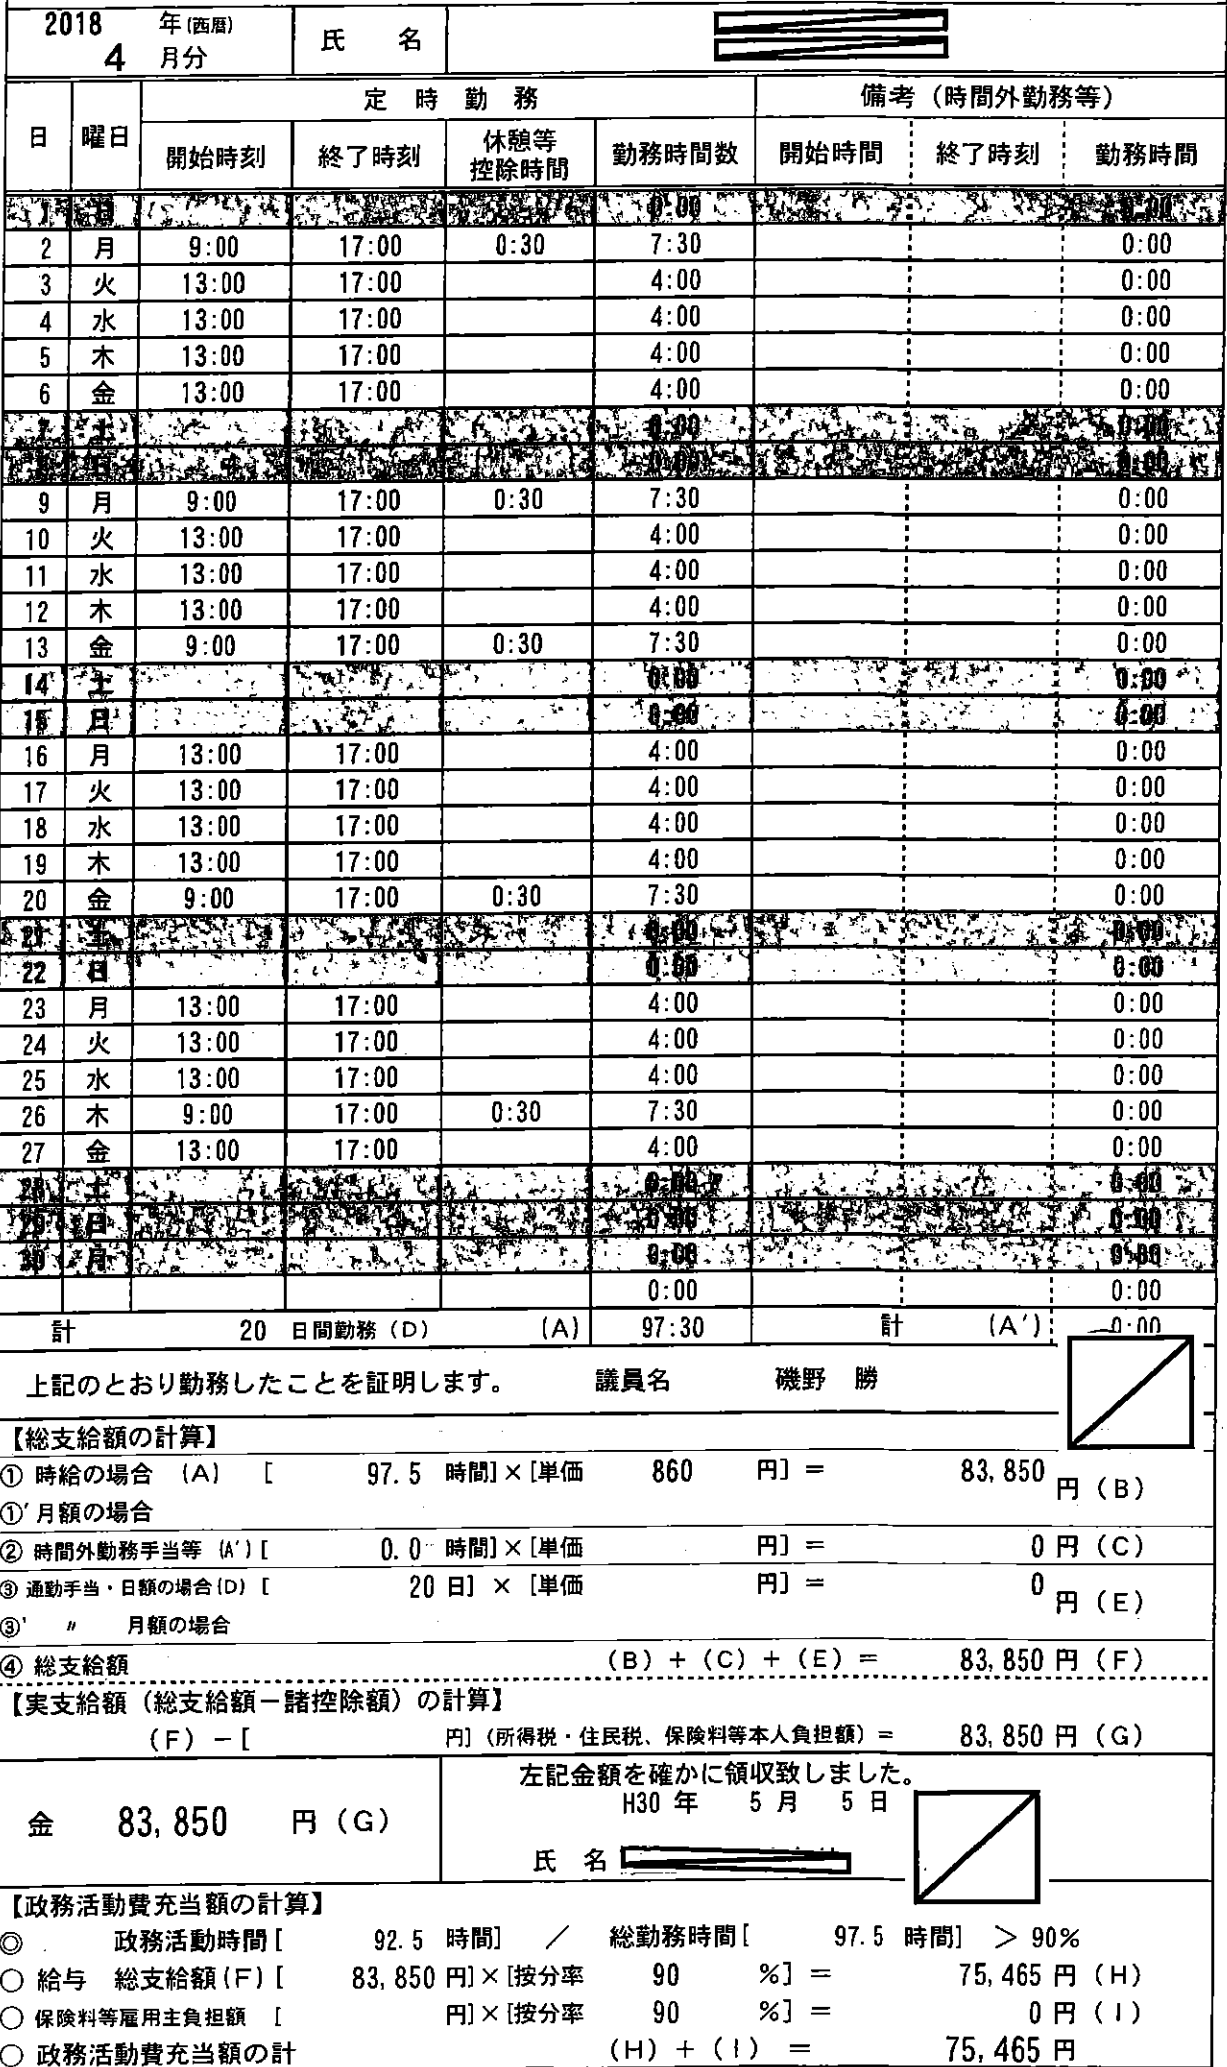 2018 年(西暦)
4 月分
氏 名
日 曜日 定 時 勤 務 備考（時間外勤務等）
開始時刻 終了時刻 休憩等控除時間 勤務時間数 開始時間 終了時刻 勤務時間
1 日 0:00 0:00
2 月 9:00 17:00 0:30 7:30 0:00
3 火 13:00 17:00 4:00 0:00
4 水 13:00 17:00 4:00 0:00
5 木 13:00 17:00 4:00 0:00
6 金 13:00 17:00 4:00 0:00
7 土 0:00 0:00
日 0:00 0:00
9 月 9:00 17:00 0:30 7:30 0:00
10 火 13:00 17:00 4:00 0:00
11 水 13:00 17:00 4:00 0:00
12 木 13:00 17:00 4:00 0:00
13 金 9:00 17:00 0:30 7:30 0:00
14 土 0:00 0:00
15 日 0:00 0:00
16 月 13:00 17:00 4:00 0:00
17 火 13:00 17:00 4:00 0:00
18 水 13:00 17:00 4:00 0:00
19 木 13:00 17:00 4:00 0:00
20 金 9:00 17:00 0:30 7:30 0:00
21 土 0:00 0:00
22 日 0:00 0:00
23 月 13:00 17:00 4:00 0:00
24 火 13:00 17:00 4:00 0:00
25 水 13:00 17:00 4:00 0:00
26 木 9:00 17:00 0:30 7:30 0:00
27 金 13:00 17:00 4:00 0:00
28 土 0:00 0:00
29 日 0:00 0:00
30 月 0:00 0:00
0:00 0:00
計 20 日間勤務（D） (A) 97:30 計 (A') 0:00
上記のとおり勤務したことを証明します。 議員名 磯野 勝
【総支給額の計算】
① 時給の場合 (A) [ 97.5 時間]×[単価 860 円] = 83,850 円（B）
①' 月額の場合
② 時間外勤務手当等 (A') [ 0.0 時間]×[単価 円] = 0 円（C）
③ 通勤手当・日額の場合(D) [ 20 日] × [単価 円] = 0 円（E）
③' 〃 月額の場合
④ 総支給額 (B) + (C) + (E) = 83,850 円（F）
【実支給額（総支給額－諸控除額）の計算】
(F) －[ 円]（所得税・住民税、保険料等本人負担額）= 83,850 円（G）
金 83,850 円（G）
左記金額を確かに領収致しました。
H30 年 5 月 5 日
氏 名
【政務活動費充当額の計算】
◎ 政務活動時間 [ 92.5 時間] ／ 総勤務時間 [ 97.5 時間] ＞90%
○ 給与 総支給額(F) [ 83,850 円]×[按分率 90 %] = 75,465 円（H）
○ 保険料等雇用主負担額 [ 円]×[按分率 90 %] = 0 円（I）
○ 政務活動費充当額の計 (H) + (I) = 75,465 円